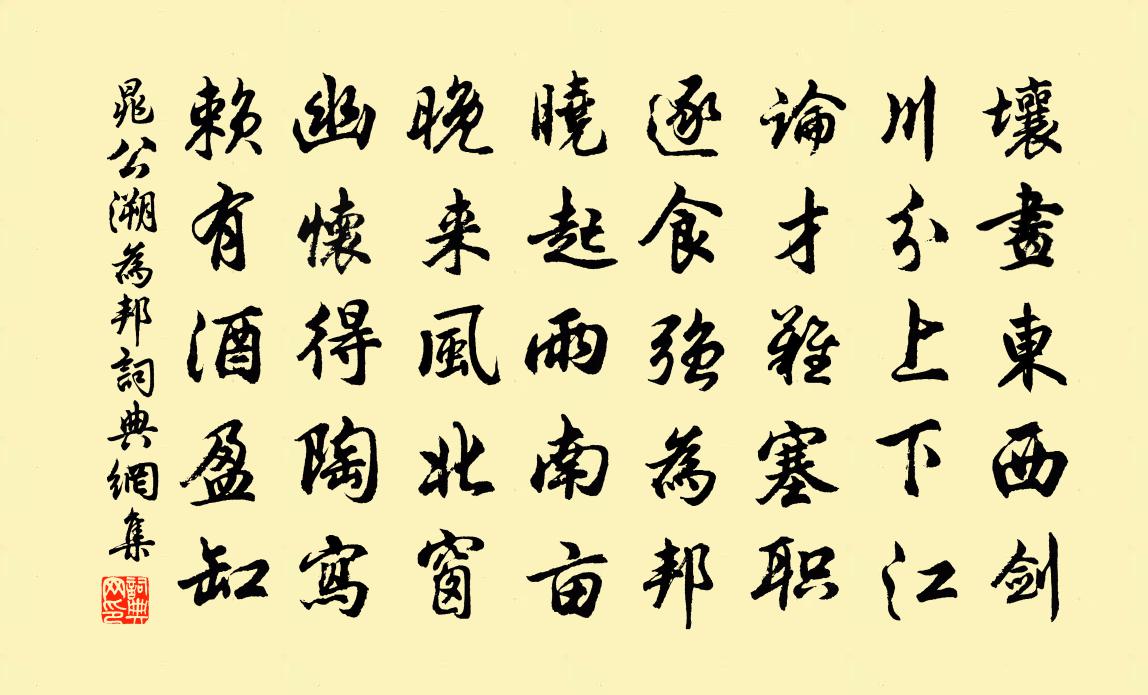 壤畫東西剑
川分上下江
論才難塞职
逐食強為邦
曉起雨南亩
晚来風北窗
幽懷得陶寫
赖有酒盈缸
晁公溯為邦詞典網集
詞典網印